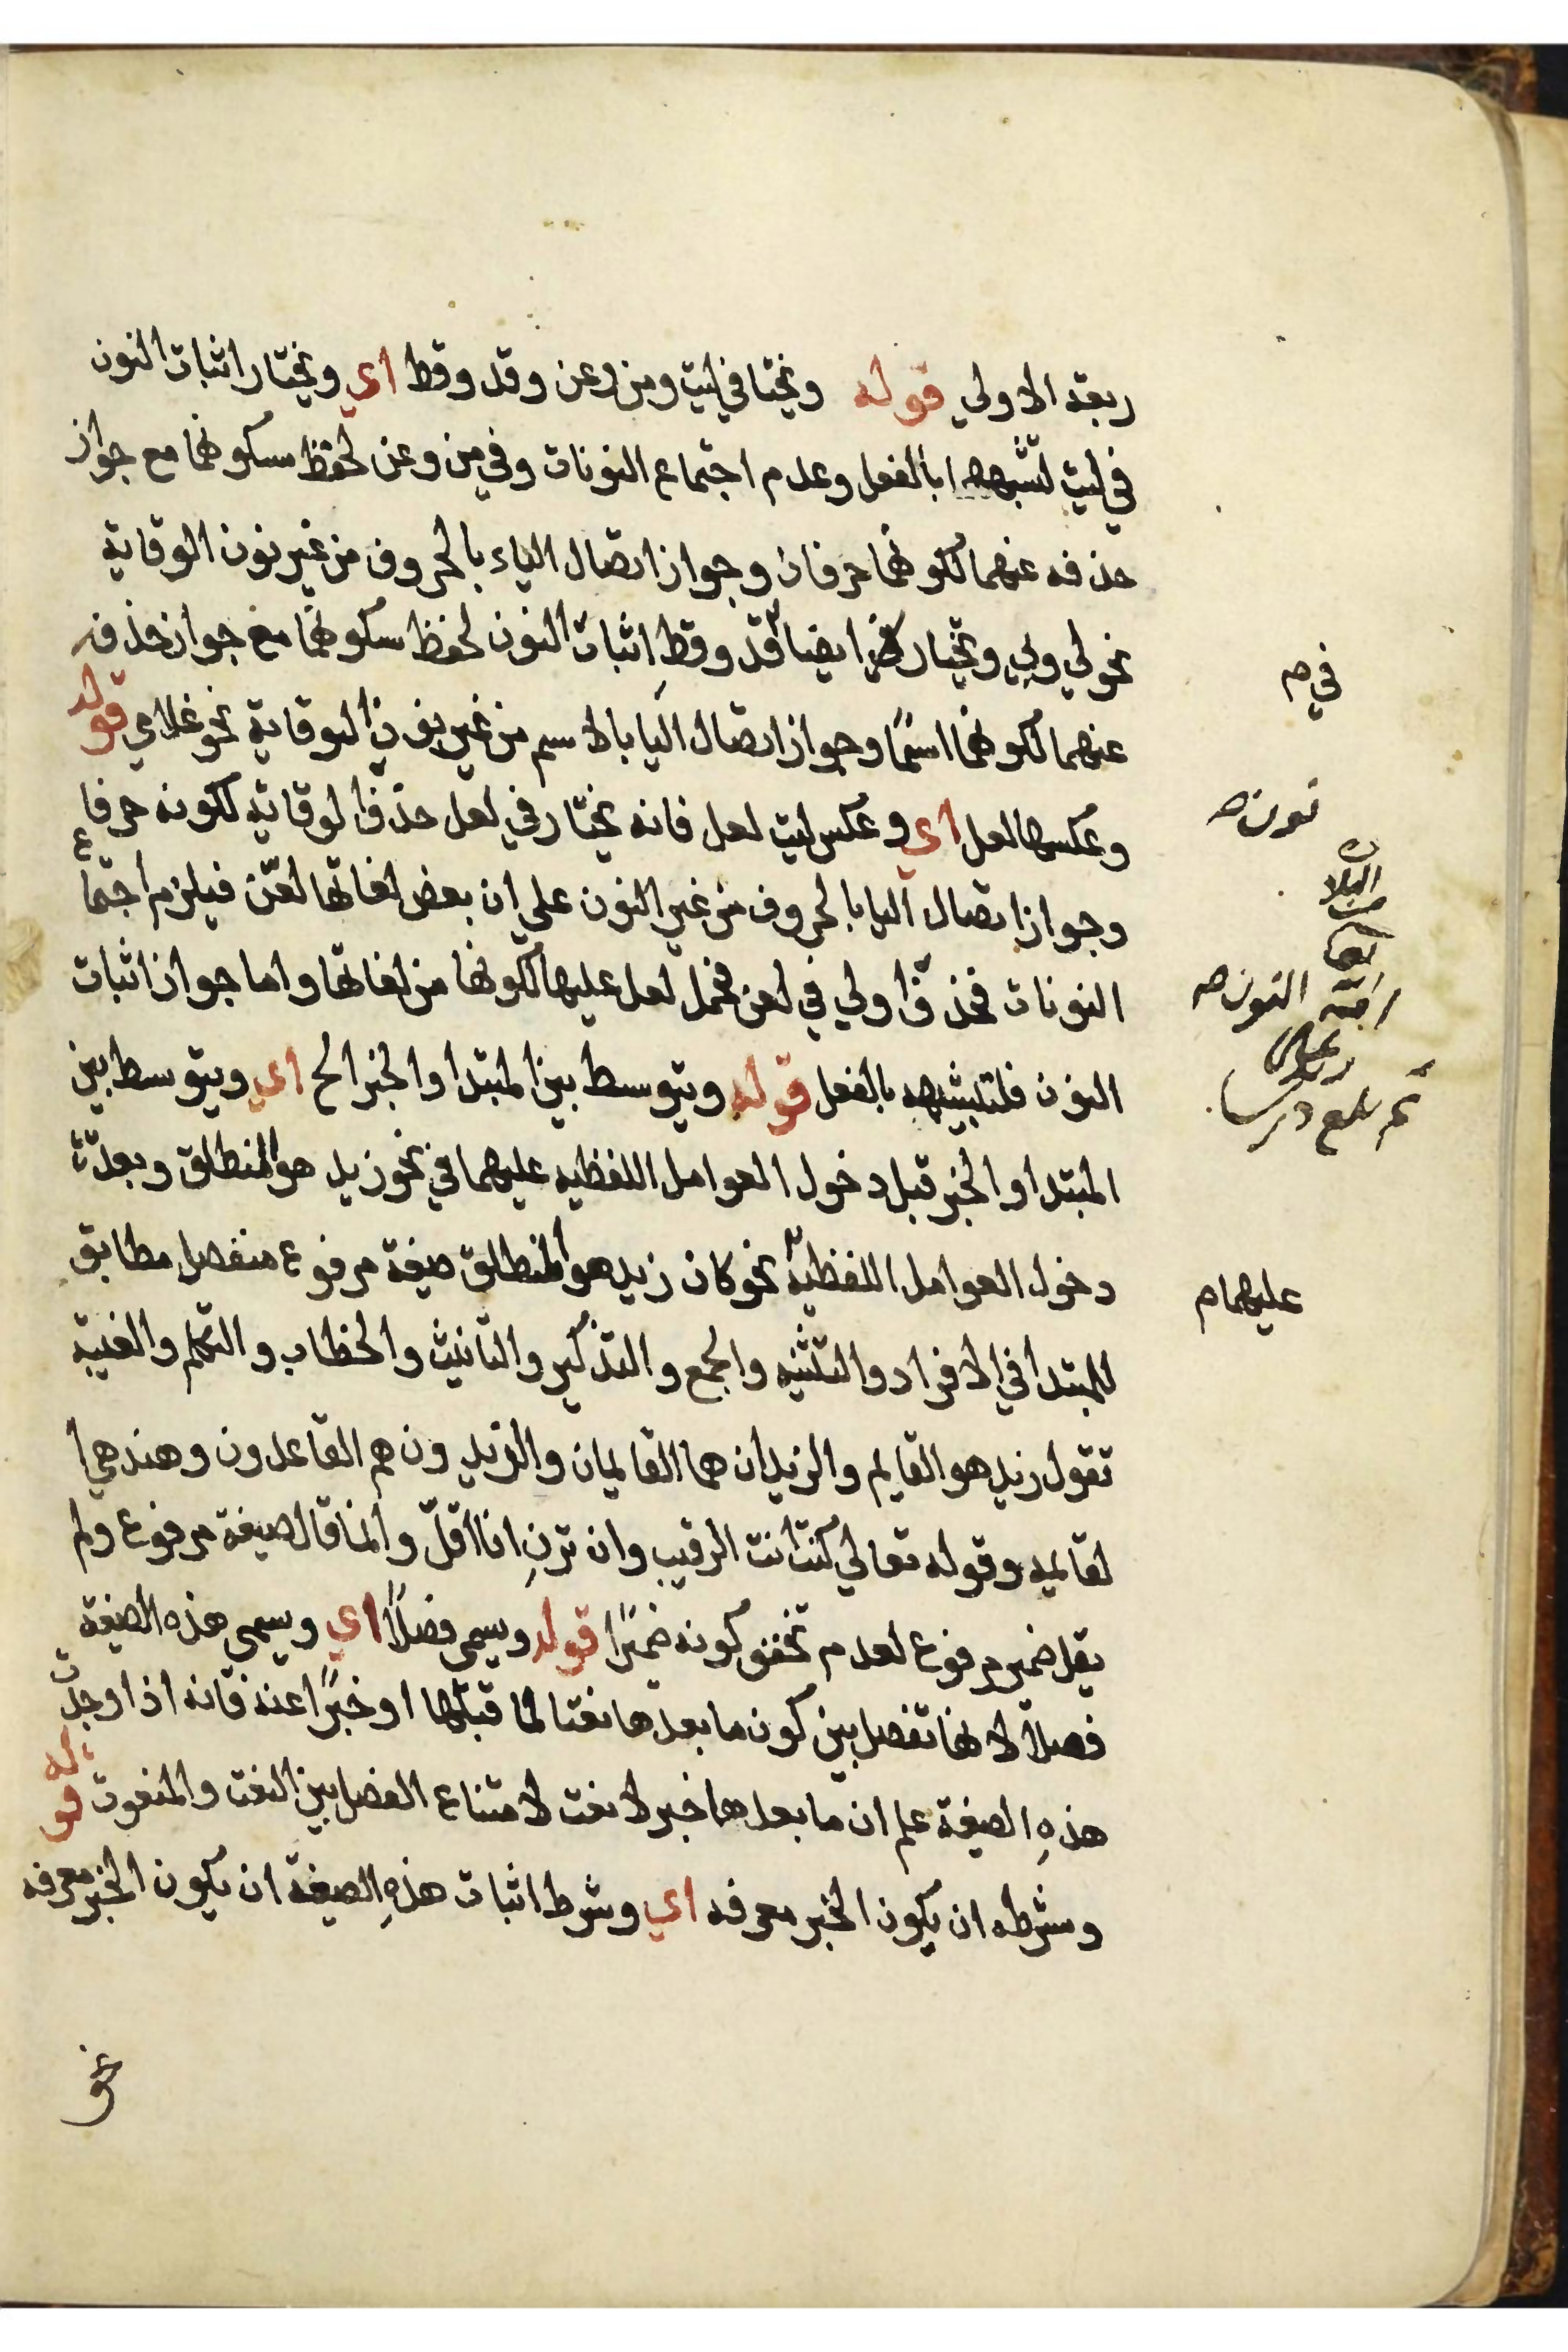 ربعة الاولي قوله ويختا في ليت ومن وعن وقد وقط اي ويختار اثبات النون
في ليت لشبهها بالفعل وعدم اجتماع النونات وفي من وعن لحفظ سكونهما مع جواز
حذفه عنهما لكونهما حرفان وجواز اتصال الياء بالحروف من غير نون الوقاية
نحو لي وبي ويختار ايضا قد وقط اثبات النون لحفظ سكونهما مع جواز حذفه
عنهما لكونهما اسمًا وجواز اتصال اليا بالاسم من غير نون الوقاية نحو غلامي قوله
وعكسها لعل اي وعكس ليت لعل فانه يختار في لعل حذف الوقاية لكونه حرفا
وجواز اتصال اليا بالحروف من غير النون علي ان بعض لغاتها لعّن فيلزم اجتماع
النونات فحذف اولي في لعن فحمل لعل عليها لكونها من لغاتها واما جواز اثبات
النون فلتشبيهه بالفعل قوله ويتوسط بين المبتدا والخبر الخ اي ويتوسط بين
المبتدا والخبر قبل دخول العوامل اللفظيه عليهما في نحو زيد هو المنطلق وبعد
دخول العوامل اللفظية نحو كان زيد هو المنطلق صيغة مرفوع منفصل مطابق
للمبتدا في الافراد والتثنيه والجمع والتذكير والتانيث والخطاب والتكلم والغيبة
تقول زيد هو القايم والزيدان هما القايمان والزيدون هم القاعدون وهند هي ا
لقايمه وقوله تعالي كنت انت الرقيب وان ترنِ انا اقلّ وانما قال صيغة مرفوع ولم
يقل ضمير مرفوع لعدم تحقق كونه ضميرًا قوله ويسمى فصلًا اي ويسمى هذه الصيغة
فصلًا لانها تفصل بين كون ما بعدها نعتا لما قبلها او خبرًا عنه فانه اذا وجدت
هذهِ الصيغة علم ان ما بعدها خبر لا نعت لامتناع الفصل بين النعت والمنعوت قوله
وشرطه ان يكون الخبر معرفه اي وشرط اثبات هذهِ الصيغة ان يكون الخبر معرفه
نحو
في صـ
نون صـ
النون صـ
عليهما م